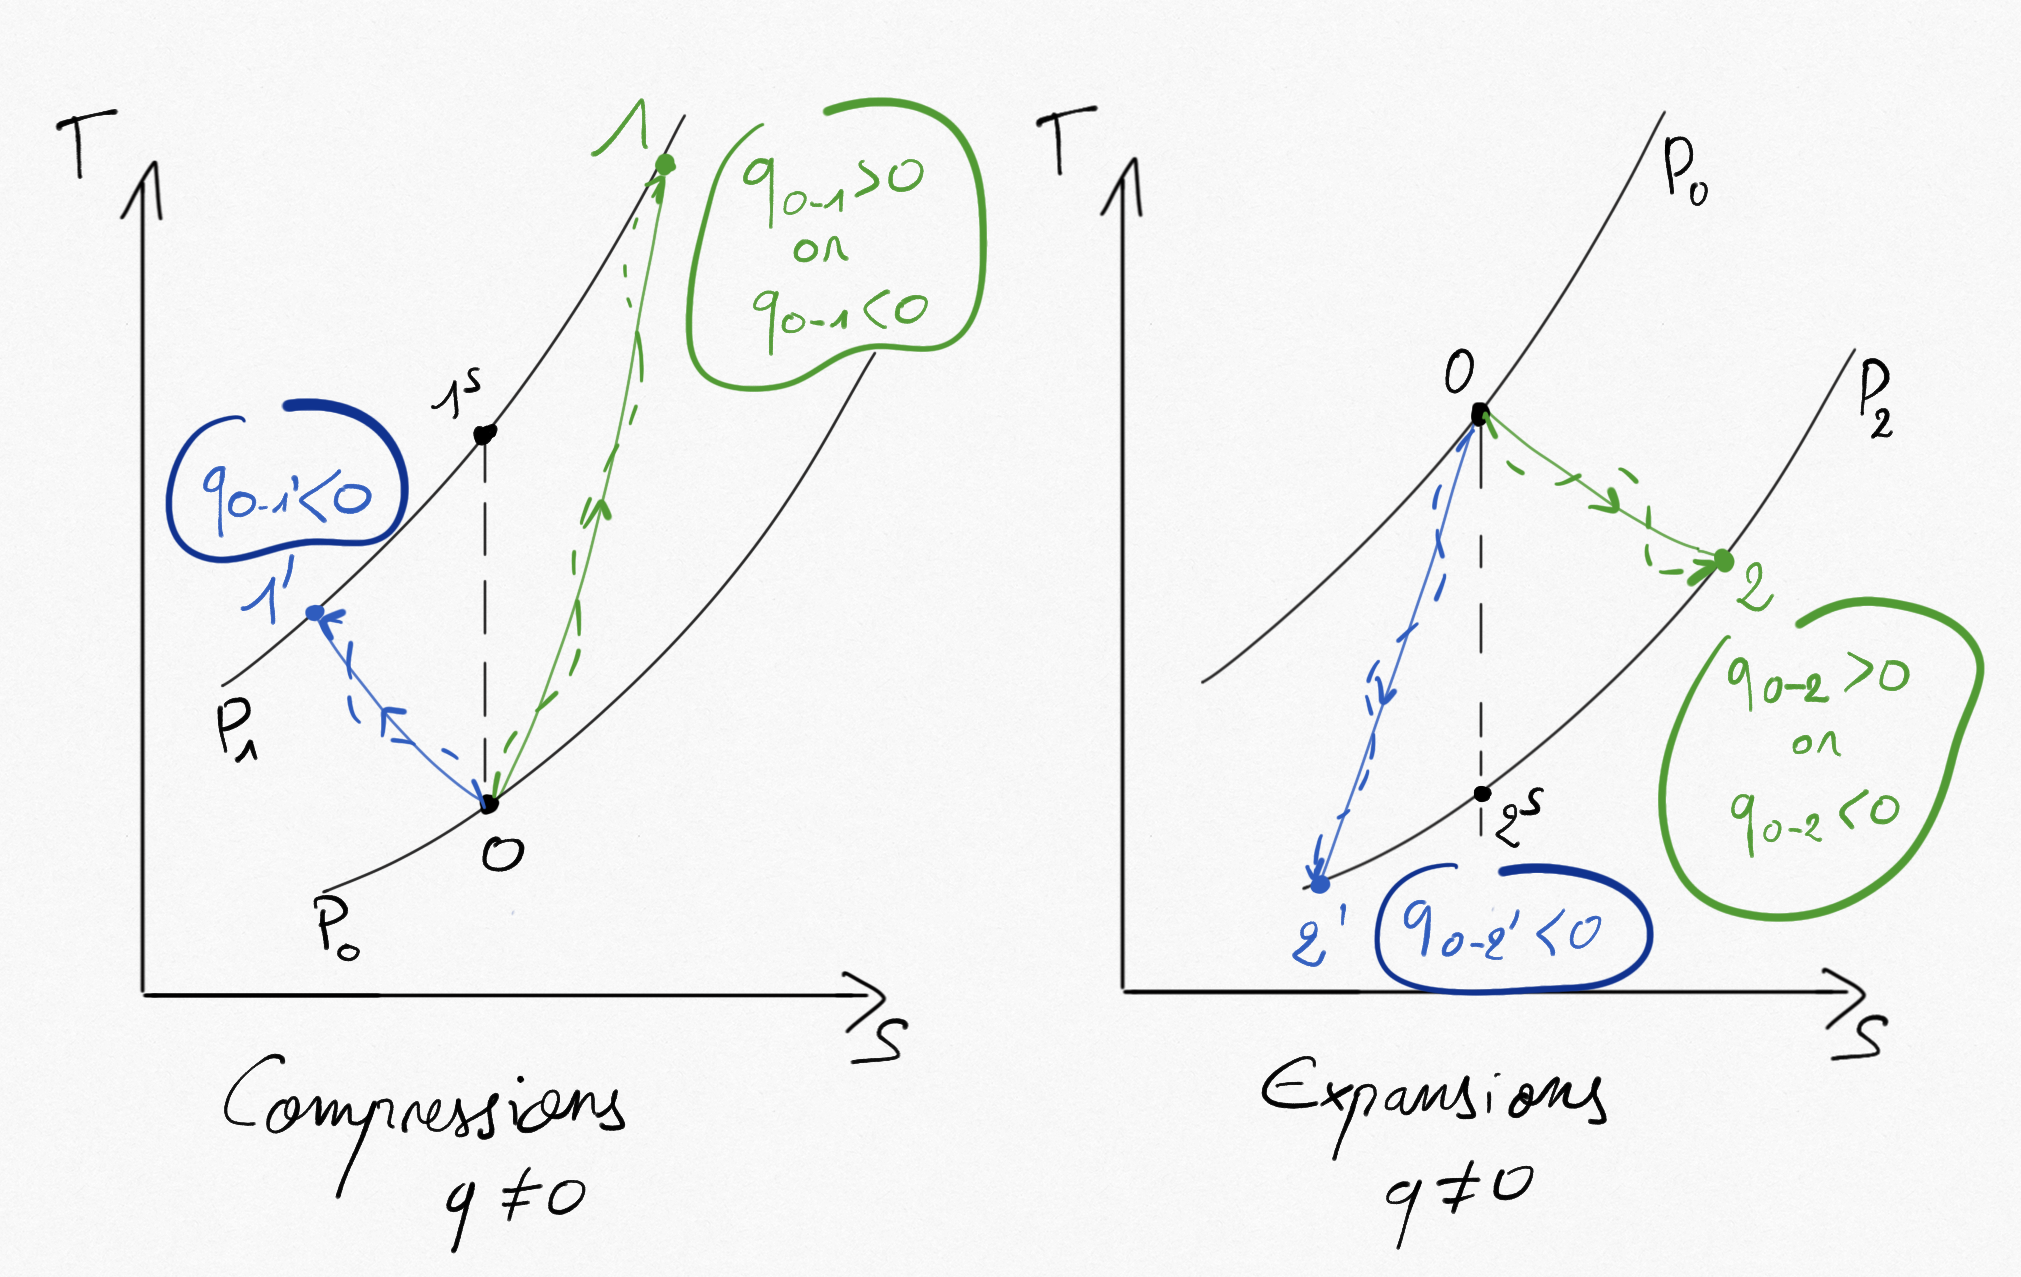 T
1
q0-1>0
or
q0-1<0
1s
q0-1'<0
1'
P1
0
P0
S
Compressions
q≠0
T
P0
0
P2
2
q0-2>0
or
q0-2<0
2s
2'
q0-2'<0
S
Expansions
q≠0